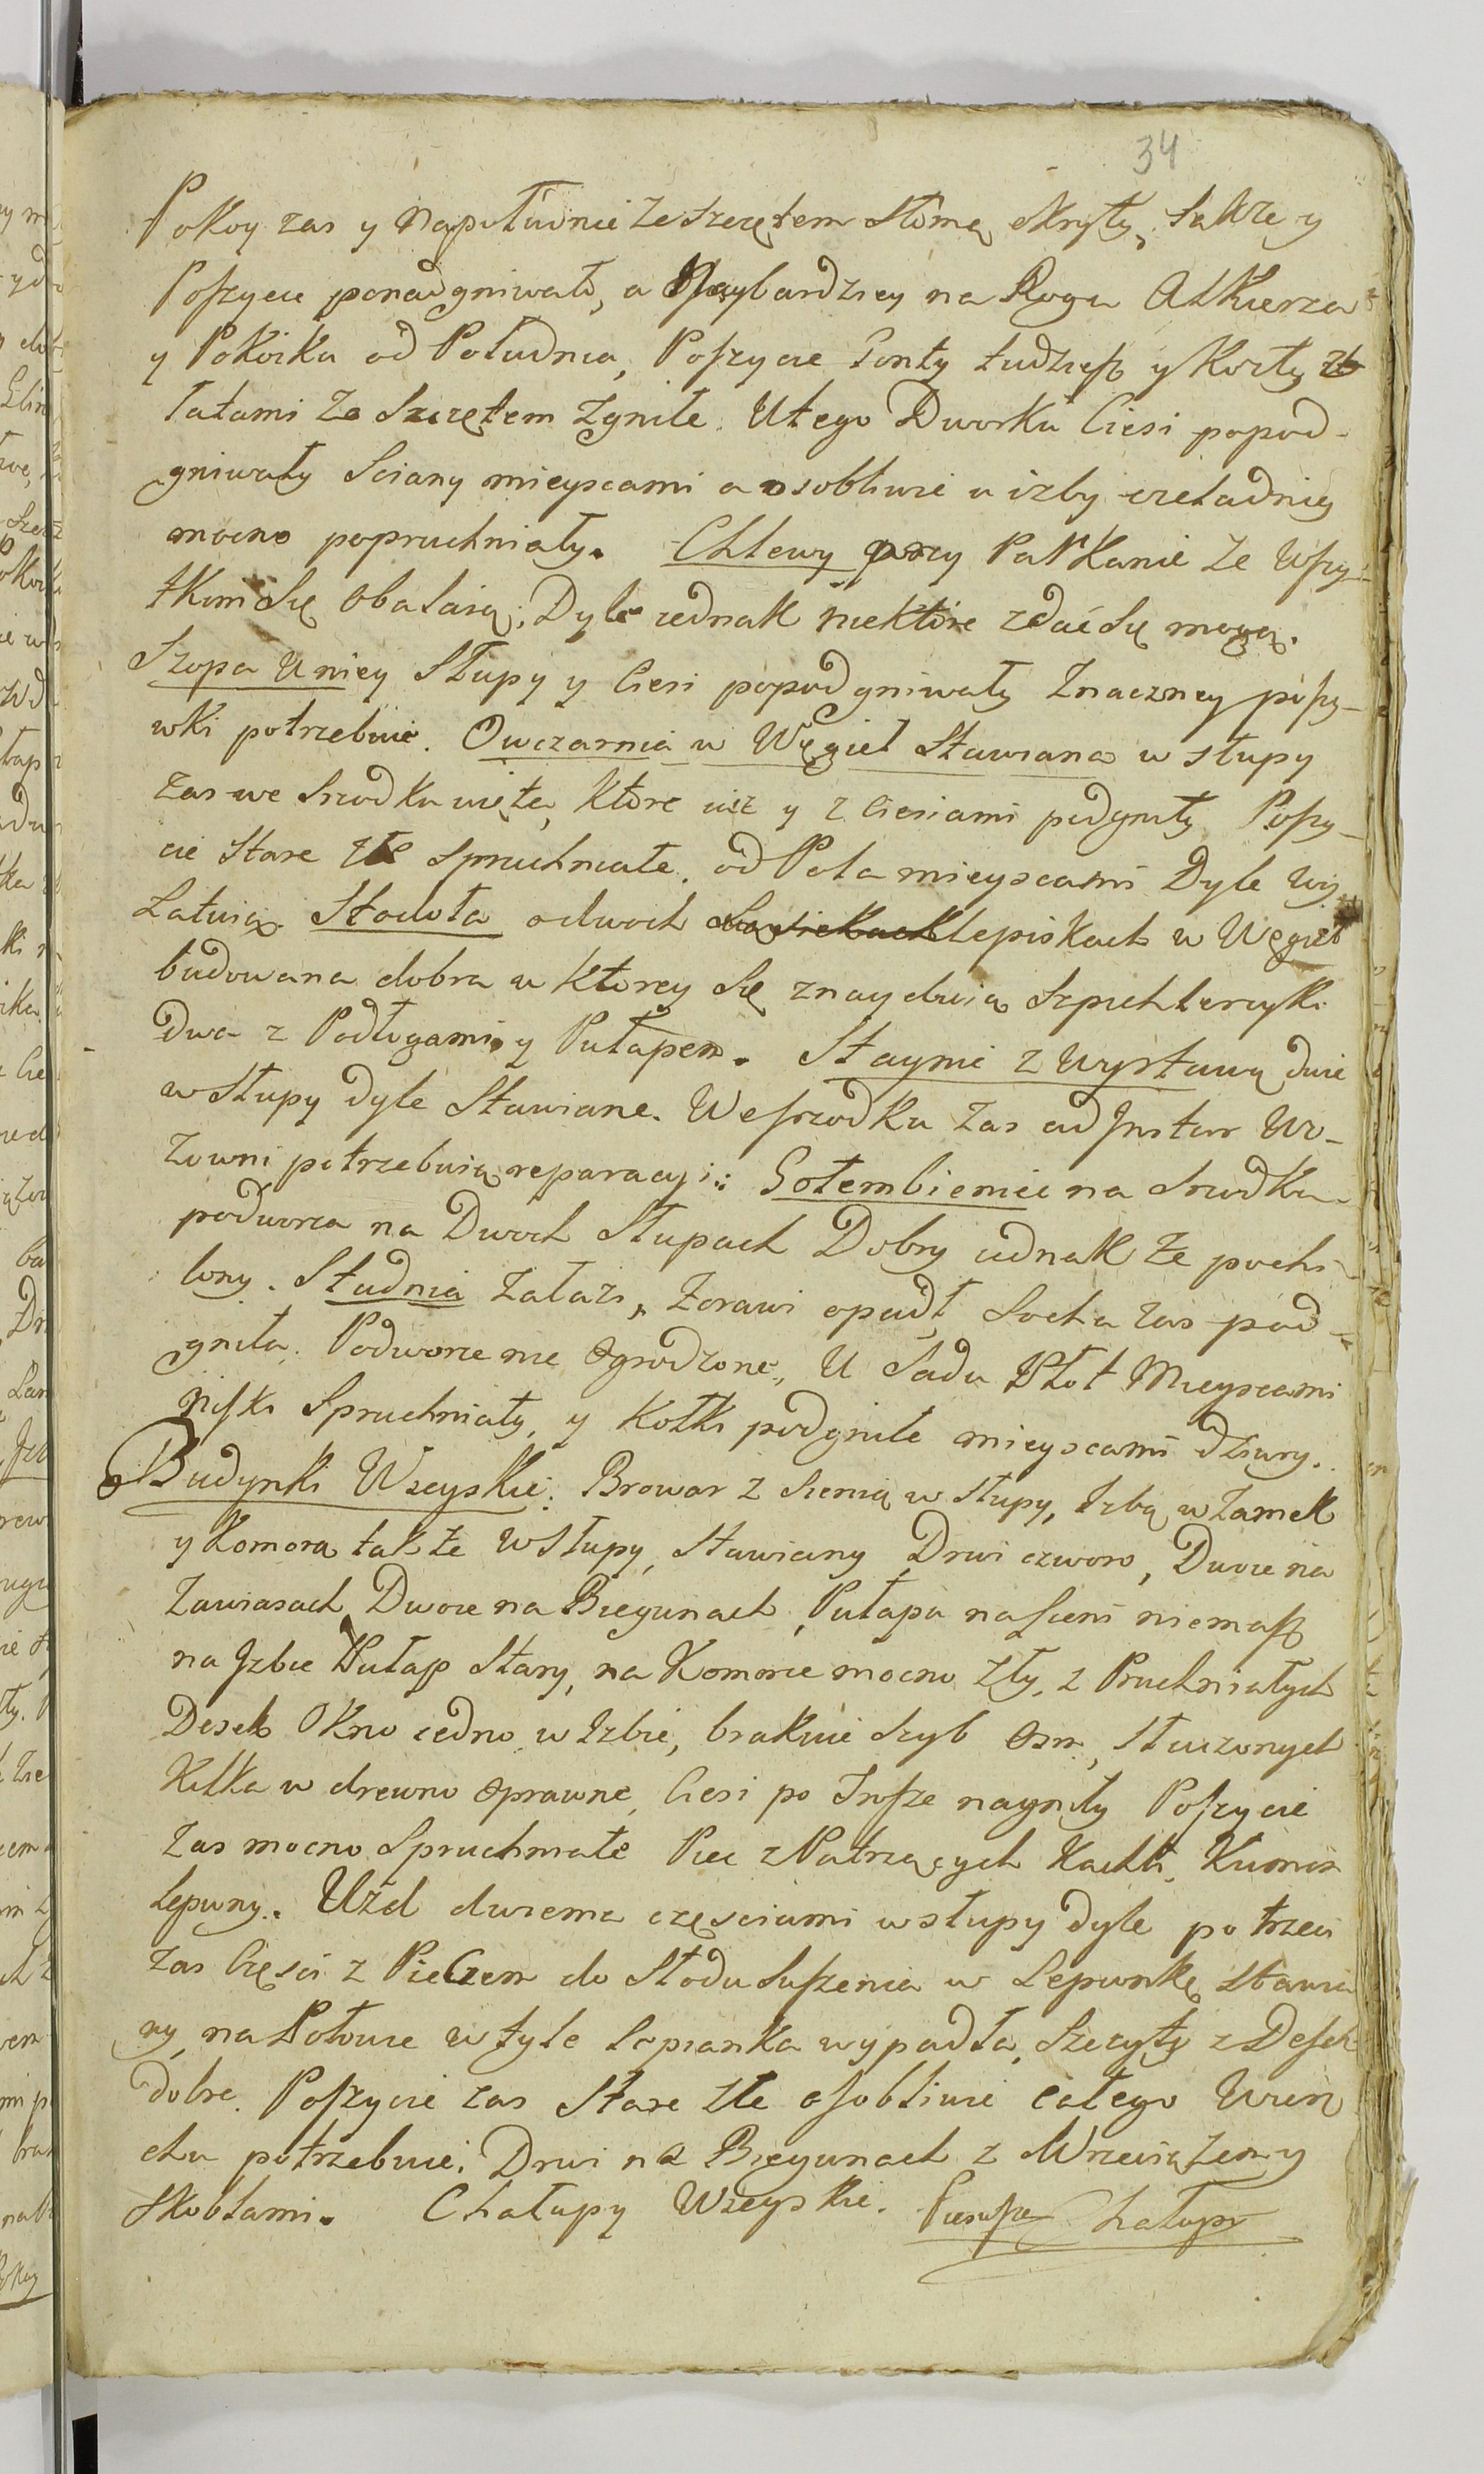 34
Pokoy zas y Napołudnie ze szczętem Słomą okryty, także y
Poszycie ponadgniwało, a Naybardziey na Rogu Alkierza
y Pokoiku od Południa, Poszycie Gonty tudziesz y Kozły z
łatami ze Szczętem zgniłe. Utego Dworku Ciesi popod-
gniwały Sciany mieyscami a osobliwie u izby czeladniey
mocno popruchniały. Chlewy przy Parkanie ze Wszy-
tkim Się obalaią; Dyle iednak niektóre zdać Się mogą.
Szopa Uniey Słupy y Ciesi popodgniwały Znaczney poszy-
wki potrzebuie. Owczarnia w Węgieł Stawiana w słupy
zas we Srzodku więta, które iuż y z Ciesiami podgniły Poszy-
cie Stare złe spruchniałe. od Pola mieyscami Dyle Wy-
latuią. Stodoła odwoch Sąsiekach klepiskach w Węgieł
budowana dobra w Ktorey Się znayduią Szpichlerzyki
Dwa z Podłogami y Pułapem. Staynie z Wystawą dwie
w Słupy dyle Stawiane. We srzodku zas ad Instar Wo-
zowni potrzebuią reparacyi: Gołembieniec na Srzodku
podworca na Dwoch Słupach Dobry iednak że pochi-
lony. Studnia Załazi, Zoraw opadł Socha zas pod-
gniła. Podworze nie Ogrodzone, U Sadu Płot Mieyscami
Niski Spruchniały, y Kołki podgniłe mieyscami Dziury.
Budynki Wieyskie: Browar z Sienią w słupy, Izbą w Zamek
y Komorą także w Słupy, Stawiany Drwi czworo, Dwoie na
Zawiasach Dwoie na Biegunach, Pułapu na Sieni niemasz
na Izbie Pułap Stary, na Komorze mocno zły, z Pruchniałych
Desek Okno iedno w Izbie, brakuie Szyb Osm, Stłuczonych
Kilka w drewno Oprawne, Ciesi po Insze nagniły Poszycie
Zas mocno Spruchniałe Piec z Patrzących Kachli, Kumin
lepiony. Ozd dwiema częsciami w słupy dyle po trzeci
Zas Częsci z Piecem do Słodu Suszenia w Lepionkę Stawia
ny, na Połowie w tyle lepianka wypadła, Szczyty z Desek
dobre. Poszycie zas Stare złe osobliwie całego Wierz
chu potrzebuie. Drwi na Biegunach z Wrzeciążem y
Skoblami. Chałupy Wieyskie. Pierwsze Chałupy